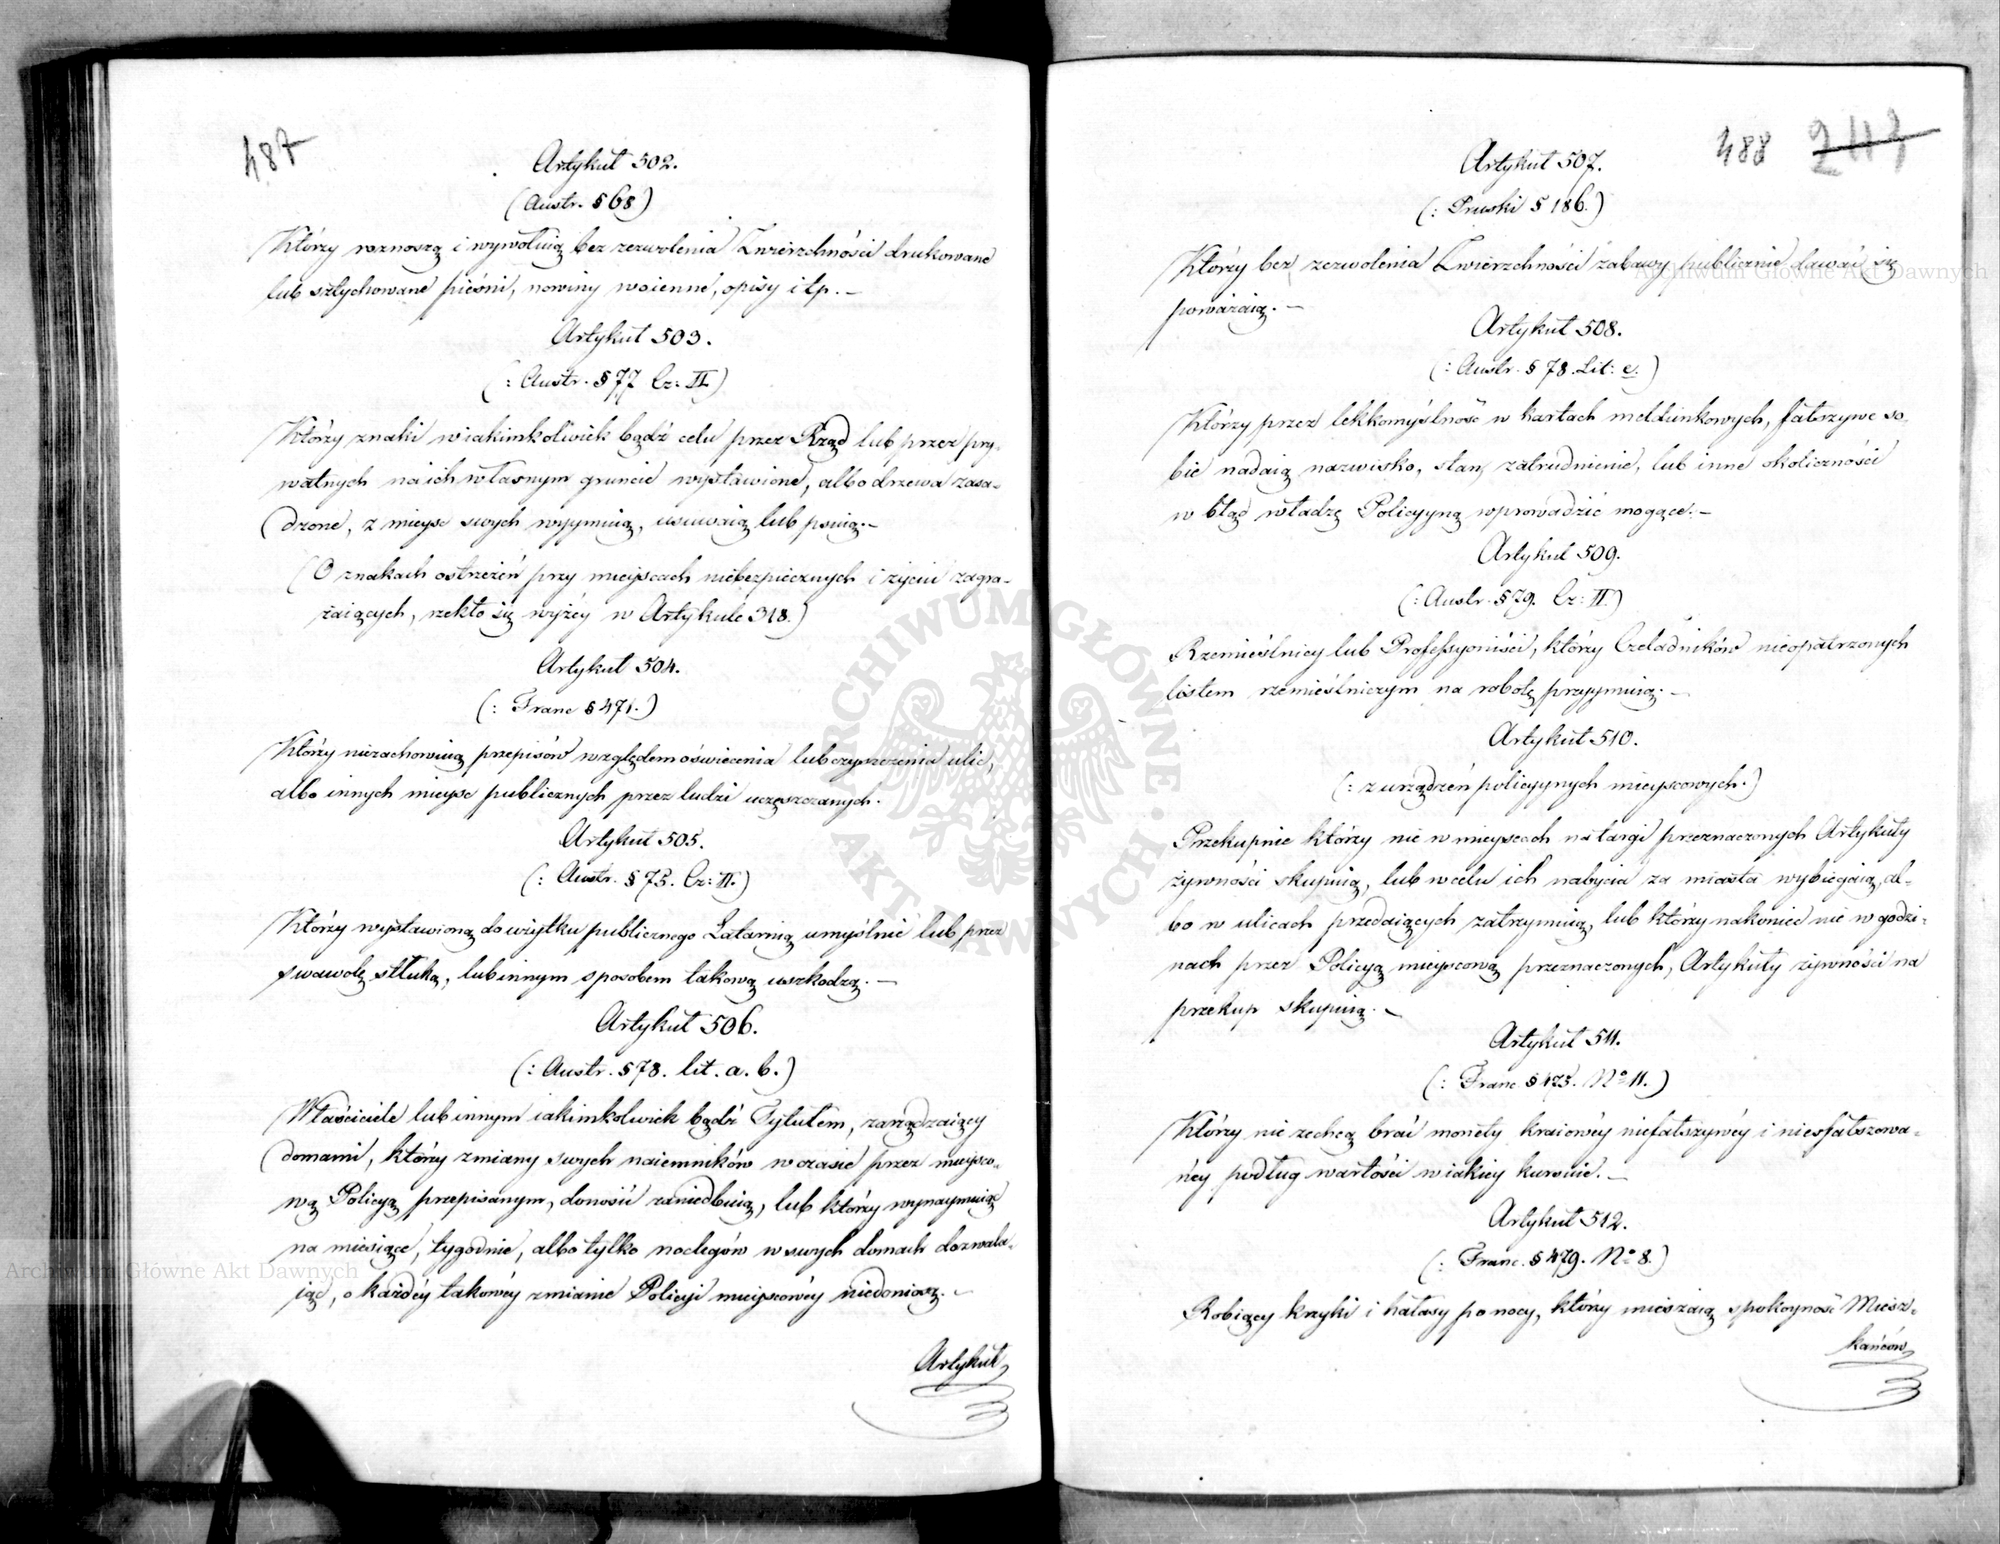 487
Artykuł 502.
(Austr. § 68)
Którzy roznoszą i wywołuią bez zezwolenia Zwierzchności drukowane
lub sztychowane pieśni, nowiny woienne, opisy i tp. —
Artykuł 503.
(: Austr. § 77 Cz: II.)
Którzy znaki w iakimkolwiek bądź celu przez Rząd lub przez pry-
watnych na ich własnym gruncie wystawione, albo drzewa zasa-
dzone, z mieysc swych wyymuią, usuwaią lub psuią. —
(O znakach ostrzeżeń przy mieyscach niebezpiecznych i życiu zagra-
żaiących, rzekło się wyżéy w Artykule 318.)
Artykuł 504.
(: Franc § 471.)
Którzy niezachowuią przepisów względem oświecenia lub czyszczenia ulic,
albo innych mieysc publicznych przez ludzi uczęszczanych.
Artykuł 505.
(: Austr. § 75. Cz: II.)
Którzy wystawioną do użytku publicznego Latarnią umyślnie lub przez
swawolę stłuką, lub innym sposobem takową uszkodzą. —
Artykuł 506.
(: Austr. § 78. lit. a. b.)
Właściciele lub innym iakimkolwiek bądź Tytułem, zarządzaiący
domami, którzy zmiany swych naiemników w czasie przez mieysco-
wą Policyą przepisanym, donosić zaniedbuią, lub którzy wynaymuiąc
na miesiące, tygodnie, albo tylko noclegów w swych domach dozwala-
iąc, o każdéy takowéy zmianie Policyi mieyscowéy niedoniosą. —
Artykuł
488 247
Artykuł 507.
(: Pruski § 186.)
Którzy bez zezwolenia Zwierzchności zabawy publicznie dawać się
poważaią. —
Artykuł 508.
(: Austr. § 78. Lit: e.)
Którzy przez lekkomyślność w kartach meldunkowych, fałszywe so-
bie nadaią nazwisko, stan, zatrudnienie, lub inne okoliczności
w błąd władzę Policyyną wprowadzić mogące. —
Artykuł 509.
(: Austr. § 79. Cz: II.)
Rzemieślnicy lub Professyoniści, którzy Czeladników nieopatrzonych
listem rzemieślniczym na robotę przyymuią. —
Artykuł 510.
(: z urządzeń policyynych mieyscowych.)
Przekupnie którzy nie w mieyscach na targi przeznaczonych Artykuły
żywności skupuią, lub w celu ich nabycia za miasta wybiegaią, al-
bo w ulicach przedaiących zatrzymuią, lub którzy nakoniec nie w godzi-
nach przez Policyą mieyscową przeznaczonych, Artykuły żywności na
przekup skupuią. —
Artykuł 511.
(: Franc. § 475. No 11.)
Którzy nie zechcą brać monety kraiowéy niefałszywéy i niesfałszowa-
néy podług wartości w iakiéy kursuie. —
Artykuł 512.
(: Franc. § 479. No 8.)
Robiący krzyki i hałasy po nocy, którzy mieszaią spokoyność Miesz-
kańców
ARCHIWUM GŁÓWNE AKT DAWNYCH
Archiwum Główne Akt Dawnych
Archiwum Główne Akt Dawnych